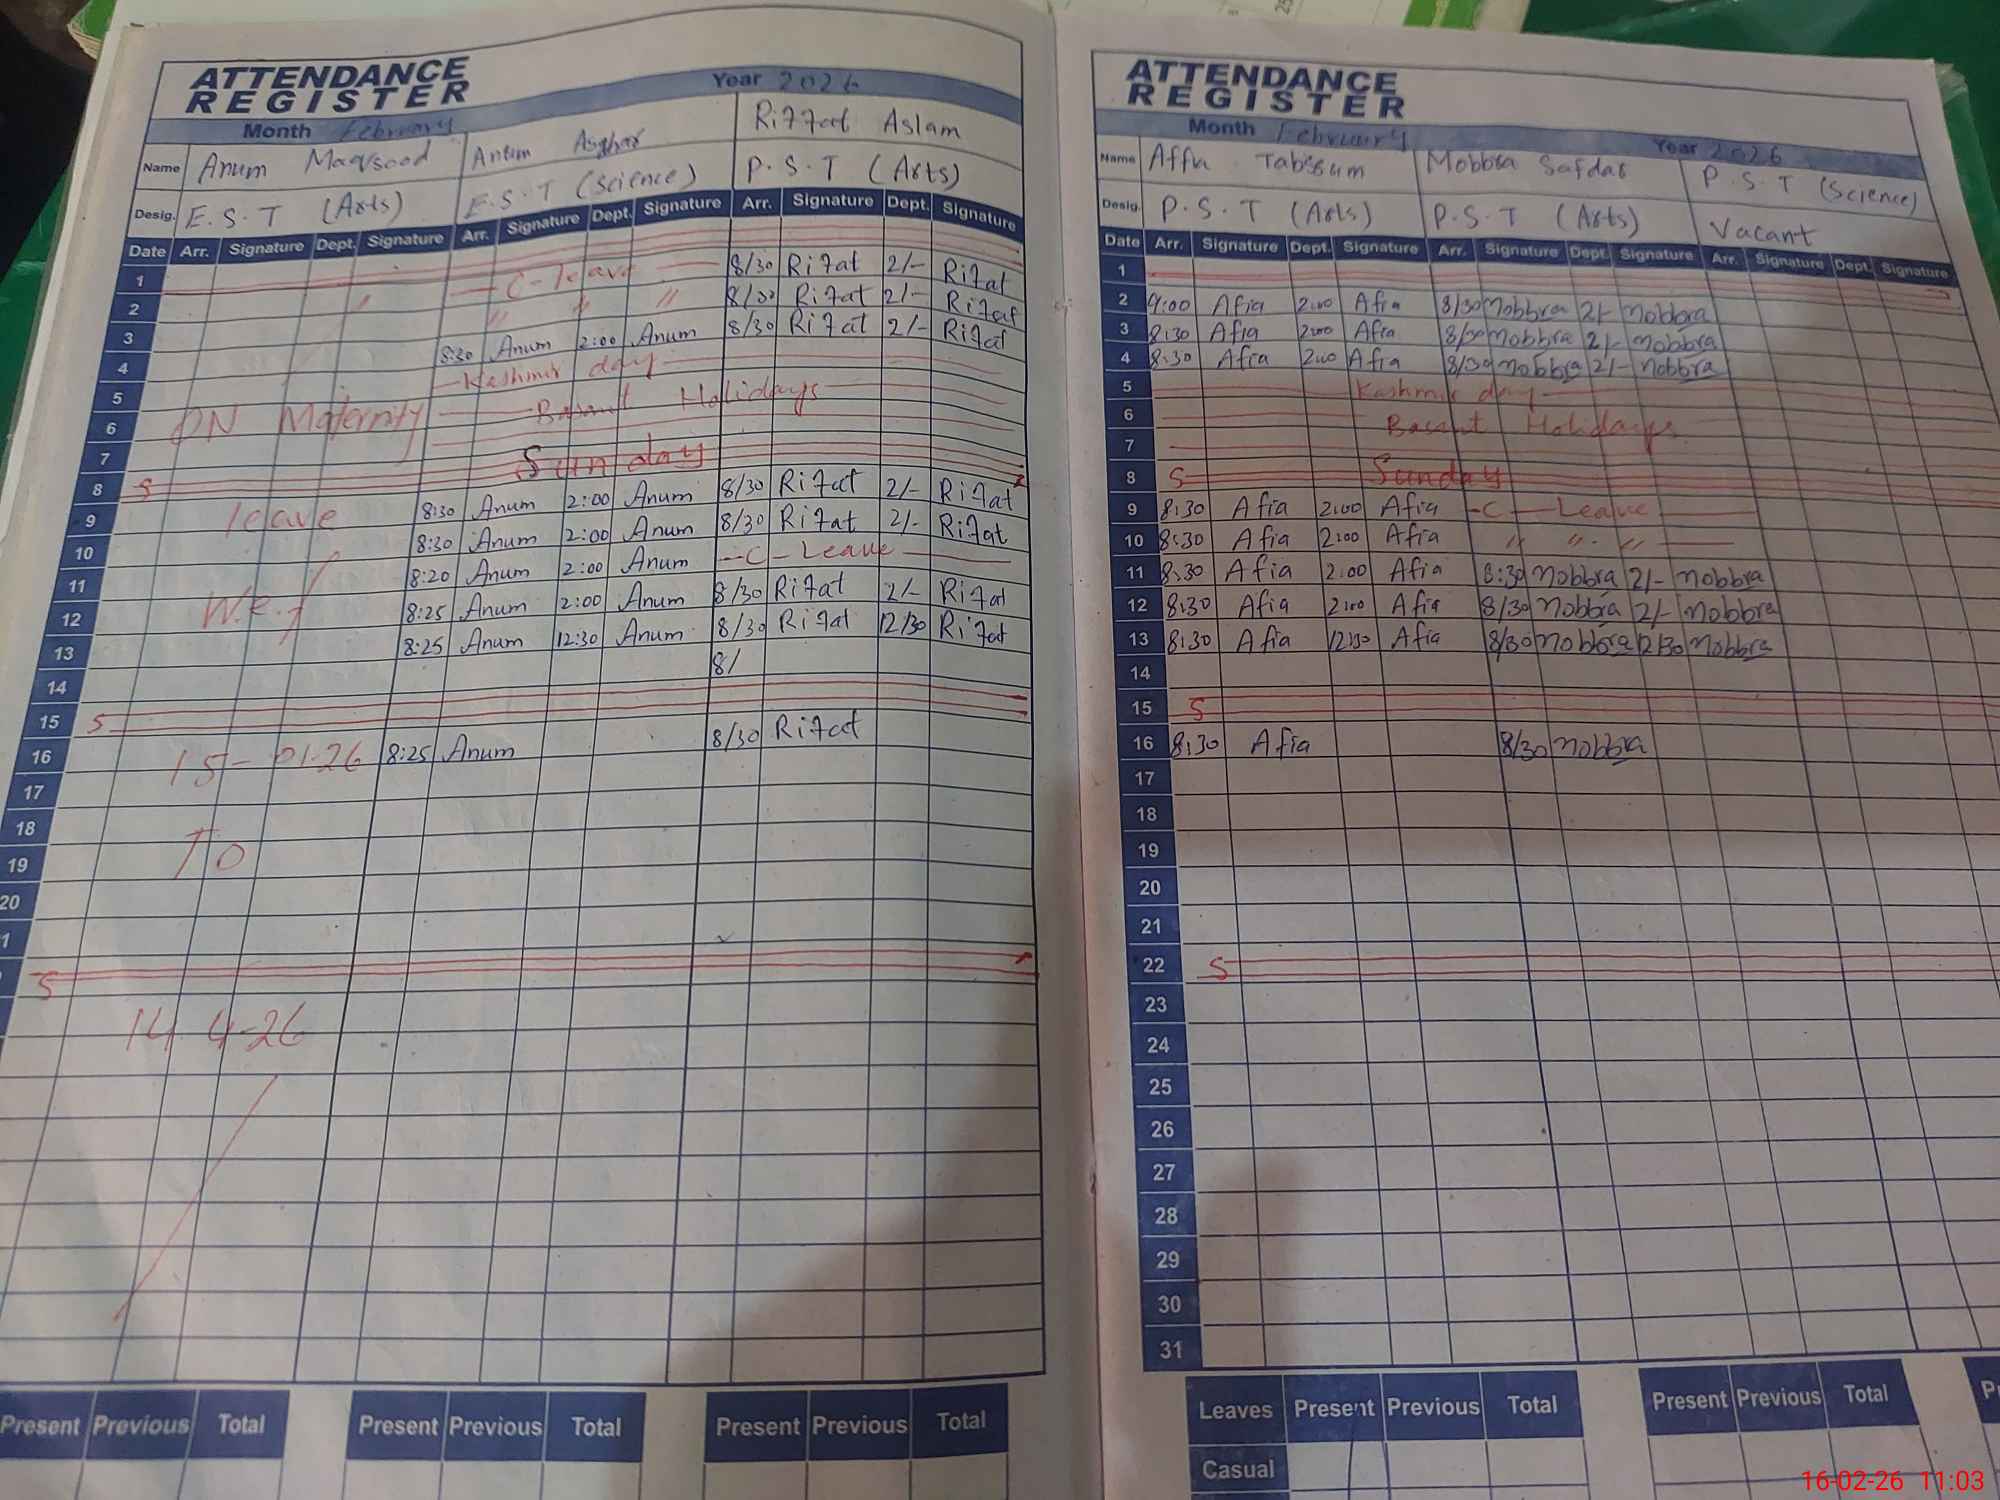 ATTENDANCE
REGISTER
Month February Year 2026
Name Anum Maqsood Anum Asghar Riffat Aslam
Desig. E.S.T (Arts) E.S.T (Science) P.S.T (Arts)
Date Arr. Signature Dept. Signature Arr. Signature Dept. Signature Arr. Signature Dept. Signature
1
2 C-leave 8/30 Rifat 2/- Rifat
3 " " " 8/30 Rifat 2/- Rifat
4 8:30 Anum 2:00 Anum 8/30 Rifat 2/- Rifat
5 Kashmir day
6 ON Maternity Basant Holidays
7
8 S Sunday
9 leave 8:30 Anum 2:00 Anum 8/30 Rifat 2/- Rifat
10 8:30 Anum 2:00 Anum 8/30 Rifat 2/- Rifat
11 8:20 Anum 2:00 Anum -C- Leave
12 W.e.f 8:25 Anum 2:00 Anum 8/30 Rifat 2/- Rifat
13 8:25 Anum 12:30 Anum 8/30 Rifat 12/30 Rifat
14 8/
15 S
16 15-01-26 8:25 Anum 8/30 Rifat
17
18
19 TO
20
1
S
14 4-26
Present Previous Total Present Previous Total Present Previous Total
ATTENDANCE
REGISTER
Month February Year 2026
Name Affia Tabssum Mobbra Safdar P.S.T (Science)
Desig. P.S.T (Arts) P.S.T (Arts) Vacant
Date Arr. Signature Dept. Signature Arr. Signature Dept. Signature Arr. Signature Dept. Signature
1
2 9:00 Afia 2:00 Afia 8/30 Mobbra 2/- Mobbra
3 8:30 Afia 2:00 Afia 8/30 Mobbra 2/- Mobbra
4 8:30 Afia 2:00 Afia 8/30 Mobbra 2/- Mobbra
5 Kashmir day
6 Basant Holidays
7
8 S Sunday
9 8:30 Afia 2:00 Afia -C- Leave
10 8:30 Afia 2:00 Afia " " "
11 8:30 Afia 2:00 Afia 8:30 Mobbra 2/- Mobbra
12 8:30 Afia 2:00 Afia 8/30 Mobbra 2/- Mobbra
13 8:30 Afia 12:30 Afia 8/30 Mobbra 12/30 Mobbra
14
15 S
16 8:30 Afia 8/30 Mobbra
17
18
19
20
21
22 S
23
24
25
26
27
28
29
30
31
Leaves Present Previous Total Present Previous Total
Casual
16-02-26 11:03